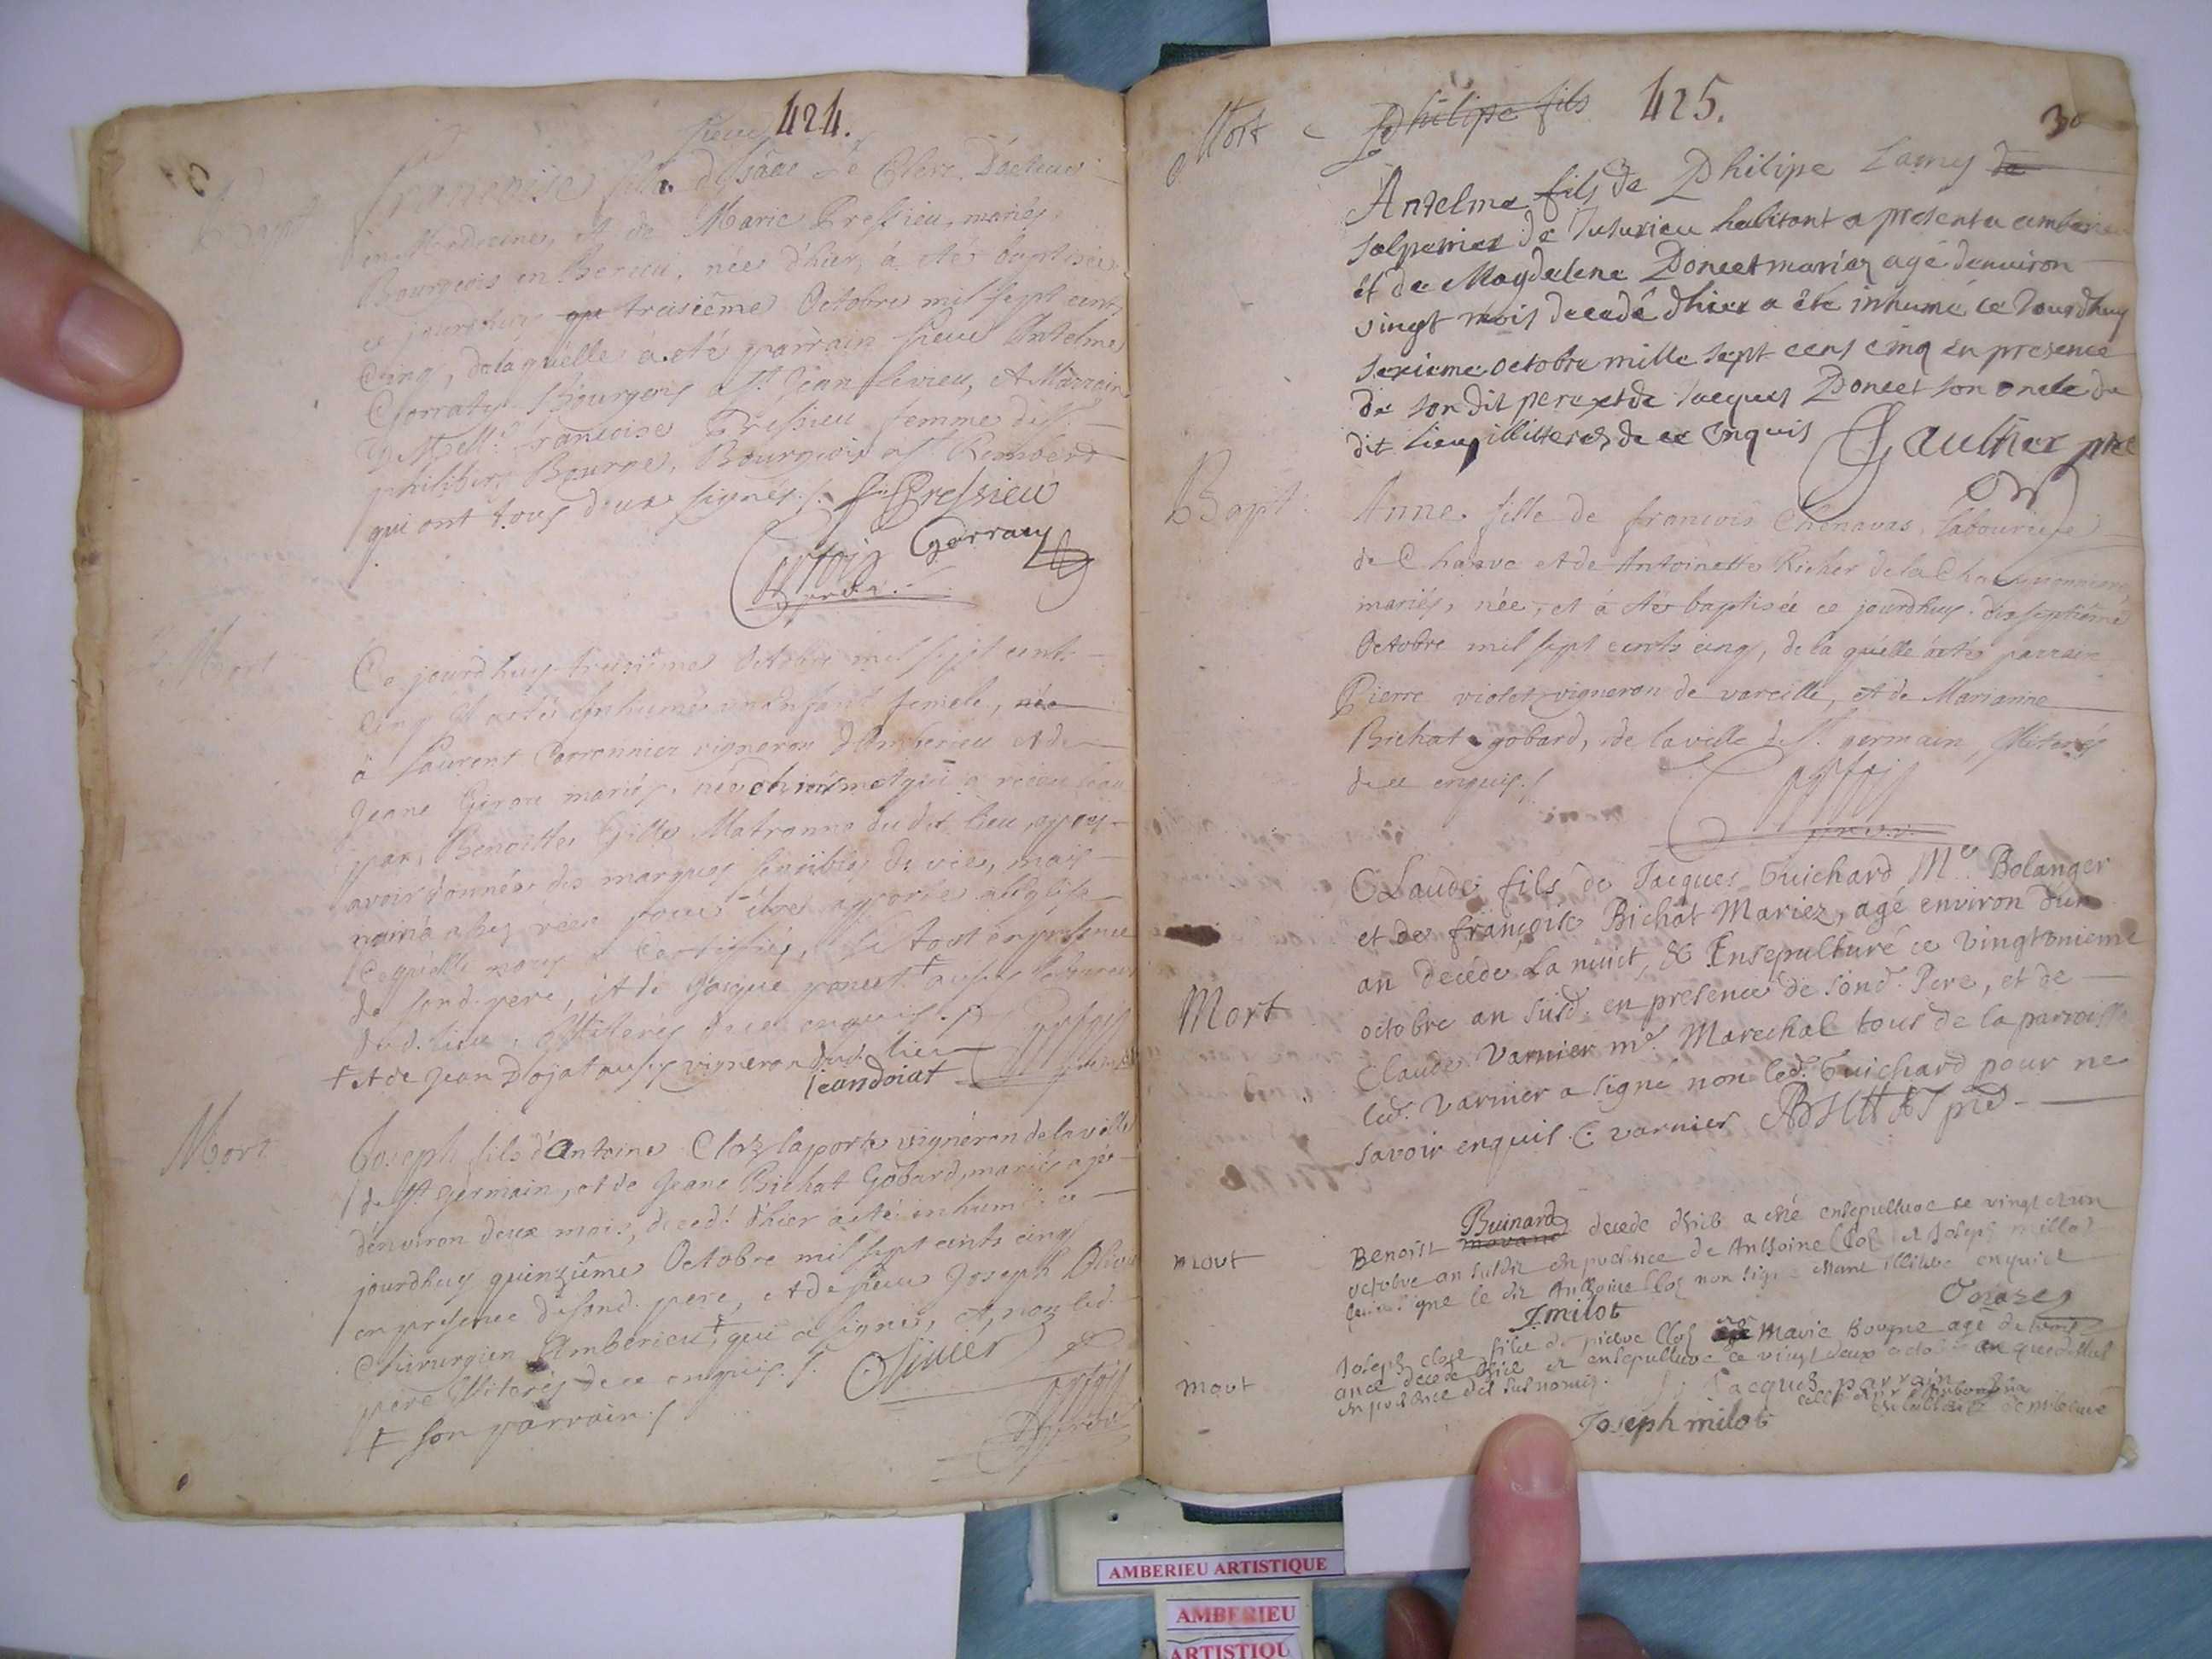 424.
Bapt
francoise fille de sieur Isaac Le Clerc Docteur
en Medecine, et de Marie Pressieu, mariés,
Bourgeois en Berieu, née d'hier, à été baptisée
ce jourdhuy treisiême Octobre mil sept cents
Cinq, de laquelle à eté parrain sieur Antelme
Bourgeois a St Jean le vieu, et Marraine
francoise Pressieu femme du Sr
philibert Bourne, Bourgeois a St Rembert
qui ont tous deux signés
f Pressieu
Mort
Ce jourdhuy treisiême Octobre mil sept cents
Cinq il a eté inhumé un Enfant femele, née
à Laurent vigneron d'Amberieu et de
Jeane Giron mariés, et qui a receu l'eau
par Benoitte Gille Matronne du dit lieu, apres
avoir donnée des marques sensibles de vie, mais
pour être apporté a l'eglise
ce qu'elle nous a Certiffiés, le tout en presence
de sond. pere, et de Jacque poncet † aussi laboureur
dud. lieu, illiterés de ce enquis
† et de Jean Dojat aussy vigneron dud. lieu
Jean doiat
Mort
Joseph fils d'Antoine Cloz laporte vigneron de la ville
de St germain, et de Jeane Bichat Gobard, mariés agé
d'environ deux mois, decedé d'hier à eté inhumé ce
jourdhuy quinziême Octobre mil sept cents cinq
en presence de sond. pere, et de sieur Joseph Olivier
Chirurgien d'Amberieu †, qui a signés, et non led.
pere illiterés de ce enquis
Olivier
† son parrain
425.
30
Mort
Philipe fils
Antelme fils de Philipe Lamy de
salpetrier de Jusurieu habitant a present a amberieu
et de Magdelene Poncet mariez agé denuiron
vingt mois decedé dhier a été inhumé ce Jourdhuy
sexieme octobre mille sept cens cinq en presence
de son dit pere et de Jacques Poncet son oncle du
dit Lieu illitterez de ce enquis
Gaultier ptre
Bapt
Anne fille de francois Chenavas, laboureur
de Chaave et de Antoinette Richer de la
mariés, née, et à été baptisée ce jourdhuy dixseptiême
Octobre mil sept cents cinq, de la quelle à eté parrain
Pierre violet vigneron de vareille, et de Marianne
Bichat gobard, de la ville de St. germain, illiterés
de ce enquis
Mort
Claude fils de Jacques Guichard Me. Bolanger
et de francoise Bichat Mariez, agé environ d'un
an decedé La nuict, & Ensepulturé ce Vingtonieme
octobre an susd. en presence de sond. Pere, et de
Claude Varnier me. Marechal tous de la parroisse
led. Varnier a signé non led. Guichard pour ne
savoir enquis. C. varnier
mort
Benoist movand Buinard decede a été ensepulture ce vingt et un
octobre an susdit en presence de Anthoine Cloz et Joseph millot
signe le dit Anthoine Cloz non signe estant illitere enquis
J milot
mort
Joseph cloz fils de pierre Cloz et Marie Bourne age de
ance decede et ensepulture ce vingt deux
en presence des susnomes.
Jacques parrain
Joseph milot
AMBERIEU ARTISTIQUE
AMBERIEU
ARTISTIQU